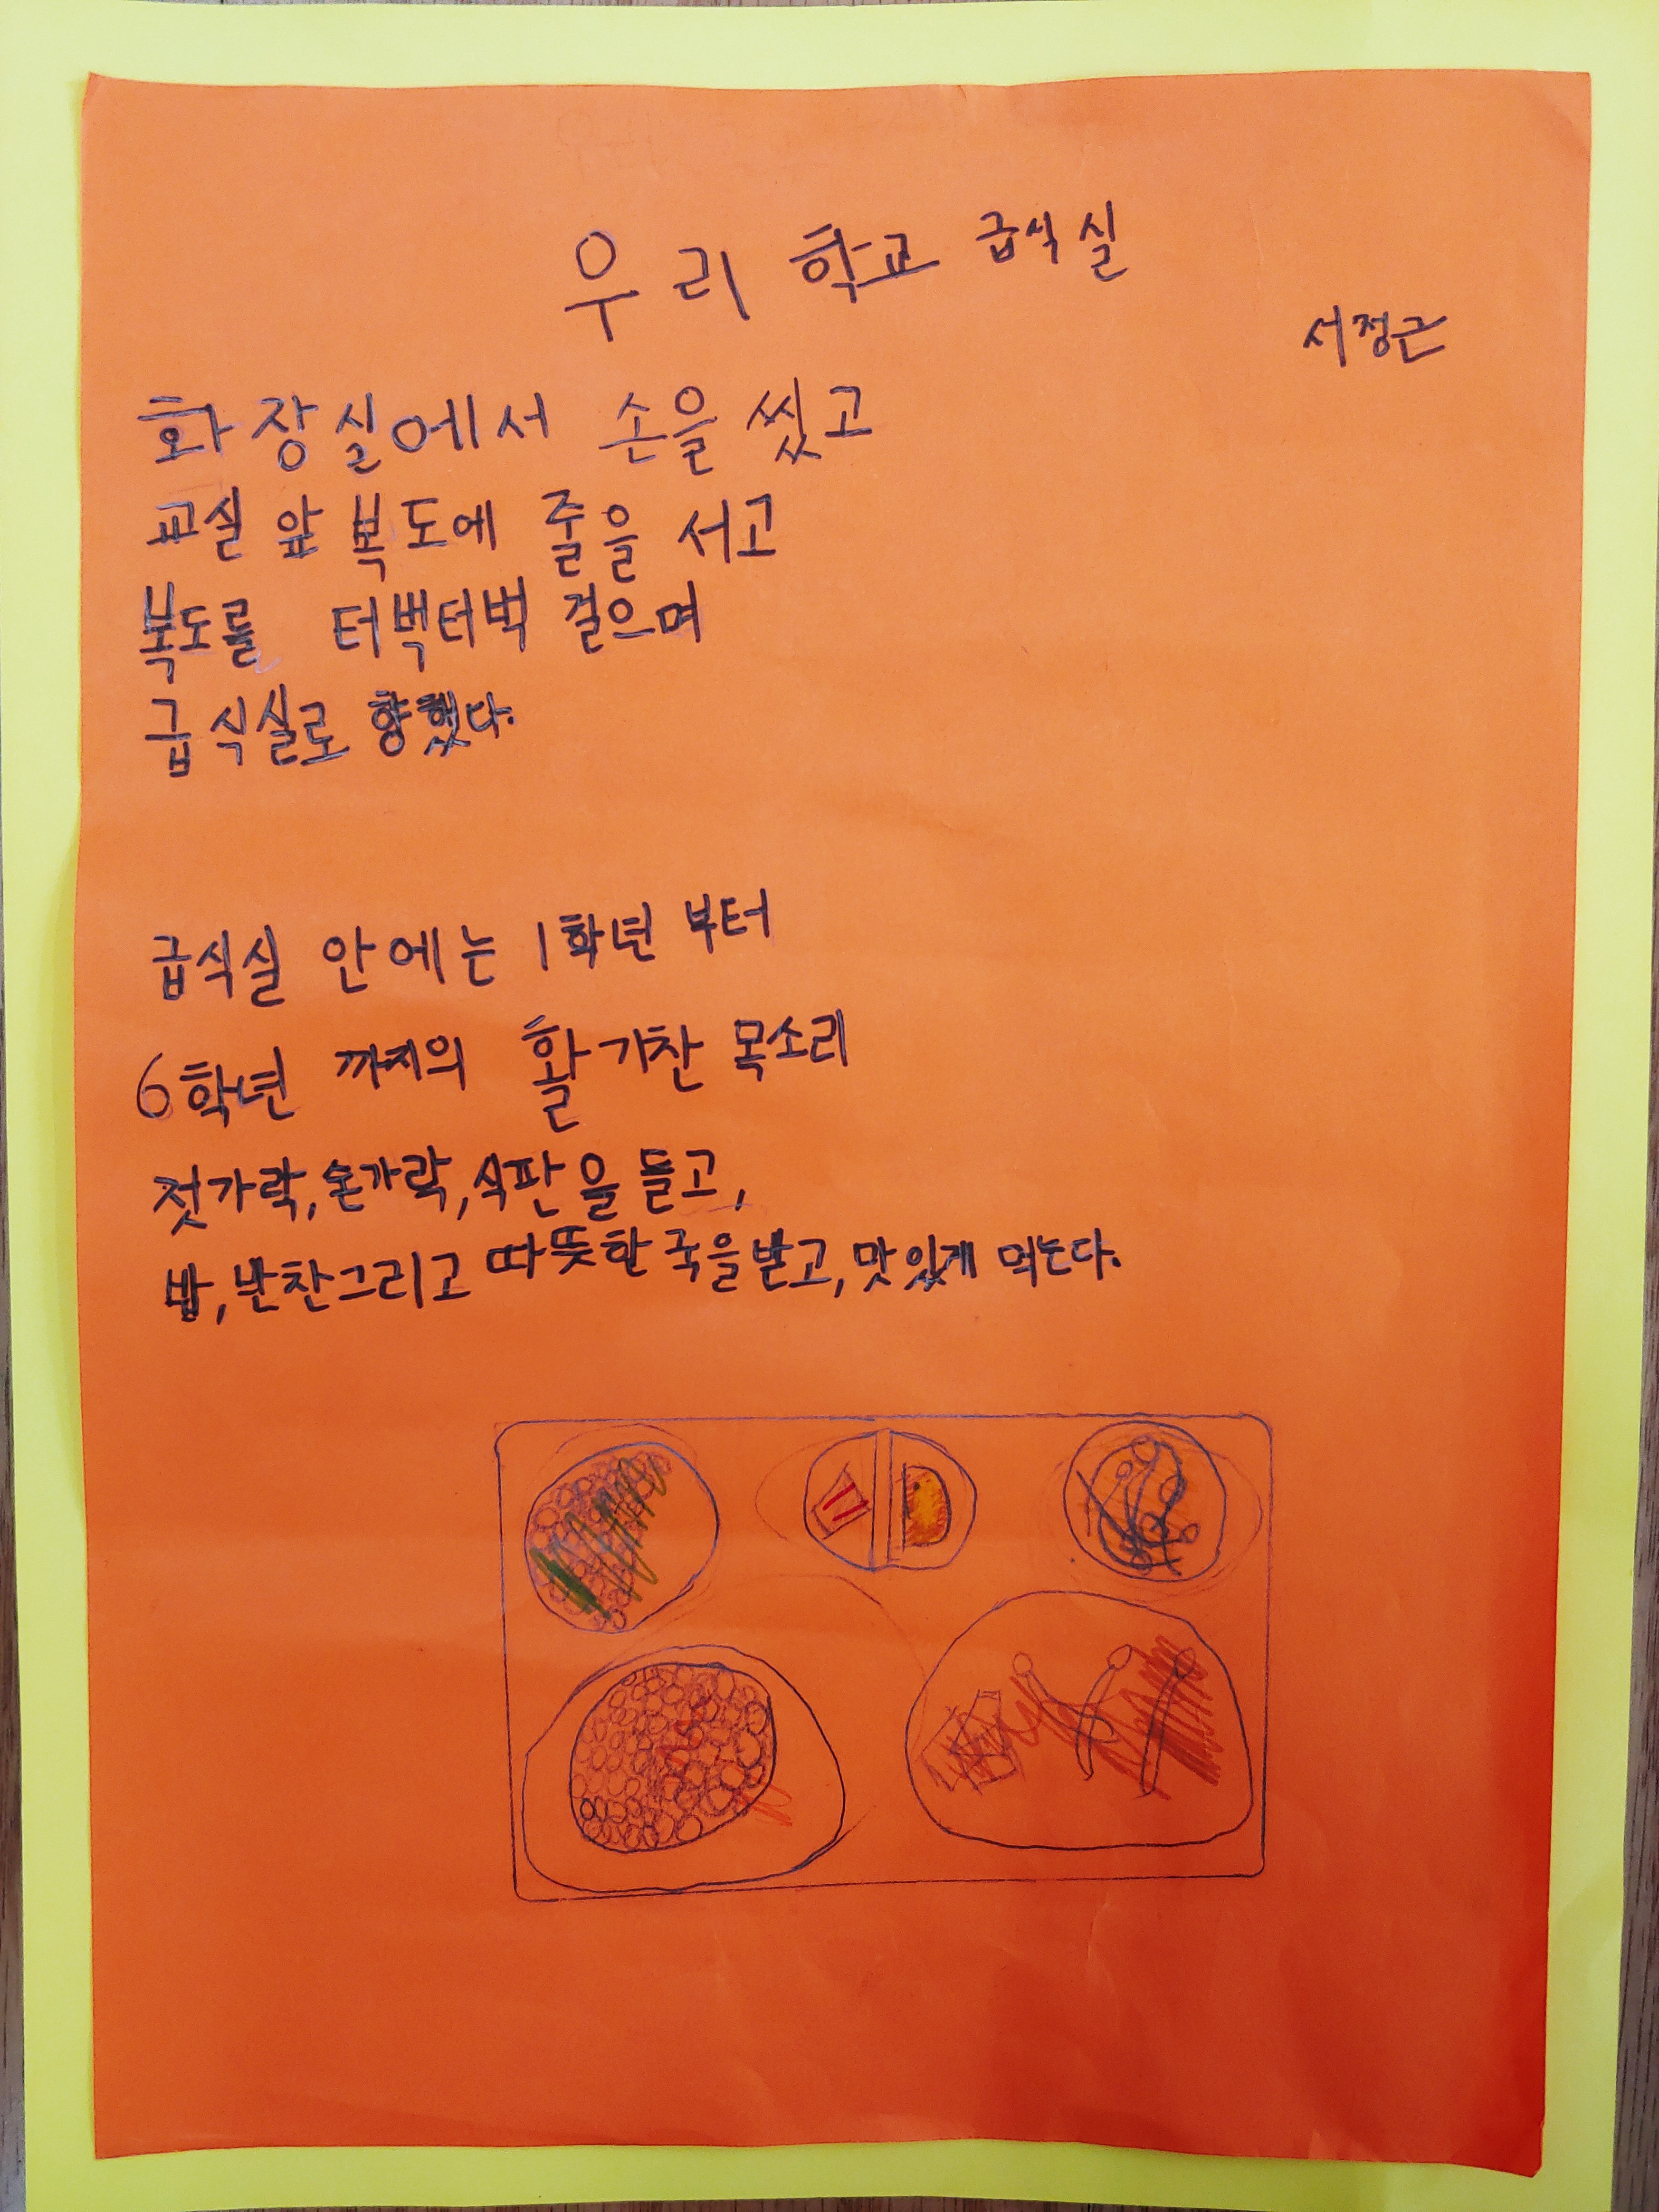 우리 학교 급식실
서정근
화장실에서 손을 씼고
교실 앞 복도에 줄을 서고
복도를 터벅터벅 걸으며
급식실로 향했다.
급식실 안에는 1학년 부터
6학년 까지의 활기찬 목소리
젓가락, 숟가락, 식판을 들고,
밥, 반찬그리고 따뜻한 국을 받고, 맛있게 먹는다.